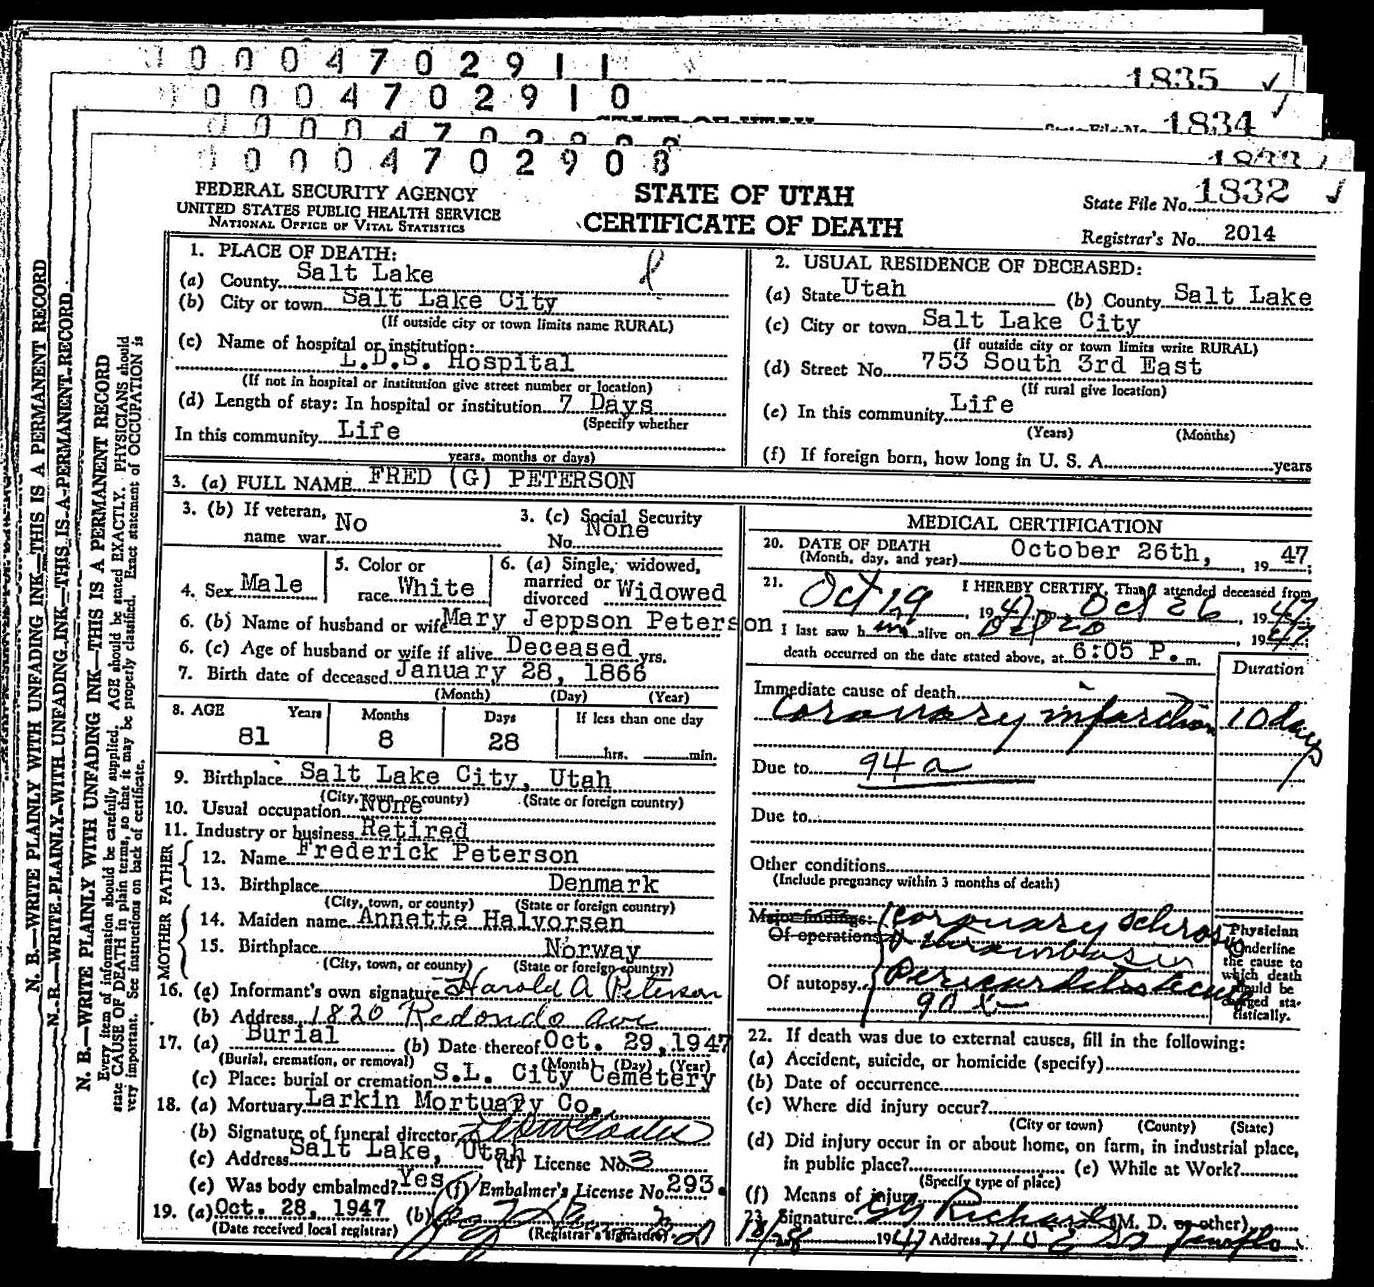 0 0 0 4 7 0 2 9 1 1
1835
0 0 0 4 7 0 2 9 1 0
1834
0 0 0 4 7 0 2 9 0 8
1832
FEDERAL SECURITY AGENCY
UNITED STATES PUBLIC HEALTH SERVICE
NATIONAL OFFICE OF VITAL STATISTICS
STATE OF UTAH
CERTIFICATE OF DEATH
State File No. 1832
Registrar's No. 2014
N. B.—WRITE PLAINLY WITH UNFADING INK—THIS IS A PERMANENT RECORD
N. B.—WRITE PLAINLY WITH UNFADING INK—THIS IS A PERMANENT RECORD
N. B.—WRITE PLAINLY WITH UNFADING INK—THIS IS A PERMANENT RECORD
Every item of information should be carefully supplied. AGE should be stated EXACTLY. PHYSICIANS should
state CAUSE OF DEATH in plain terms, so that it may be properly classified. Exact statement of OCCUPATION is
very important. See instructions on back of certificate.
1. PLACE OF DEATH:
(a) County Salt Lake
(b) City or town Salt Lake City
(If outside city or town limits name RURAL)
(c) Name of hospital or institution:
L.D.S. Hospital
(If not in hospital or institution give street number or location)
(d) Length of stay: In hospital or institution 7 Days
(Specify whether
In this community Life
years, months or days)
2. USUAL RESIDENCE OF DECEASED:
(a) State Utah (b) County Salt Lake
(c) City or town Salt Lake City
(If outside city or town limits write RURAL)
(d) Street No. 753 South 3rd East
(If rural give location)
(e) In this community Life
(Years) (Months)
(f) If foreign born, how long in U. S. A. years
3. (a) FULL NAME FRED (G) PETERSON
3. (b) If veteran, name war No
3. (c) Social Security No. None
4. Sex Male
5. Color or race White
6. (a) Single, widowed, married or divorced Widowed
6. (b) Name of husband or wife Mary Jeppson Peterson
6. (c) Age of husband or wife if alive Deceased yrs.
7. Birth date of deceased January 28, 1866
(Month) (Day) (Year)
8. AGE Years Months Days If less than one day
81 8 28 hrs. min.
9. Birthplace Salt Lake City, Utah
(City, town or county) (State or foreign country)
10. Usual occupation None
11. Industry or business Retired
FATHER
12. Name Frederick Peterson
13. Birthplace Denmark
(City, town, or county) (State or foreign country)
MOTHER
14. Maiden name Annette Halvorsen
15. Birthplace Norway
(City, town, or county) (State or foreign country)
16. (a) Informant's own signature Harold A Peterson
(b) Address 1820 Redondo Ave
17. (a) Burial (b) Date thereof Oct. 29, 1947
(Burial, cremation, or removal) (Month) (Day) (Year)
(c) Place: burial or cremation S.L. City Cemetery
18. (a) Mortuary Larkin Mortuary Co.
(b) Signature of funeral director
(c) Address Salt Lake, Utah (d) License No. 3
(e) Was body embalmed? Yes (f) Embalmer's License No. 293.
19. (a) Oct. 28, 1947 (b)
(Date received local registrar) (Registrar's signature)
MEDICAL CERTIFICATION
20. DATE OF DEATH
(Month, day, and year) October 26th, 1947;
21. I HEREBY CERTIFY, That I attended deceased from
Oct 19 1947 Oct 26, 1947
I last saw him alive on 1947
death occurred on the date stated above, at 6:05 P. m.
Duration
Immediate cause of death
Coronary infarction 10 days
Due to 94a
Due to
Other conditions
(Include pregnancy within 3 months of death)
Major findings: Coronary
Of operations
Of autopsy
90 x
Physician
Underline
the cause to
which death
should be
charged sta-
tistically.
22. If death was due to external causes, fill in the following:
(a) Accident, suicide, or homicide (specify)
(b) Date of occurrence
(c) Where did injury occur?
(City or town) (County) (State)
(d) Did injury occur in or about home, on farm, in industrial place,
in public place? (e) While at Work?
(Specify type of place)
(f) Means of injury
23. Signature Richards (M. D. or other)
10/28 1947 Address